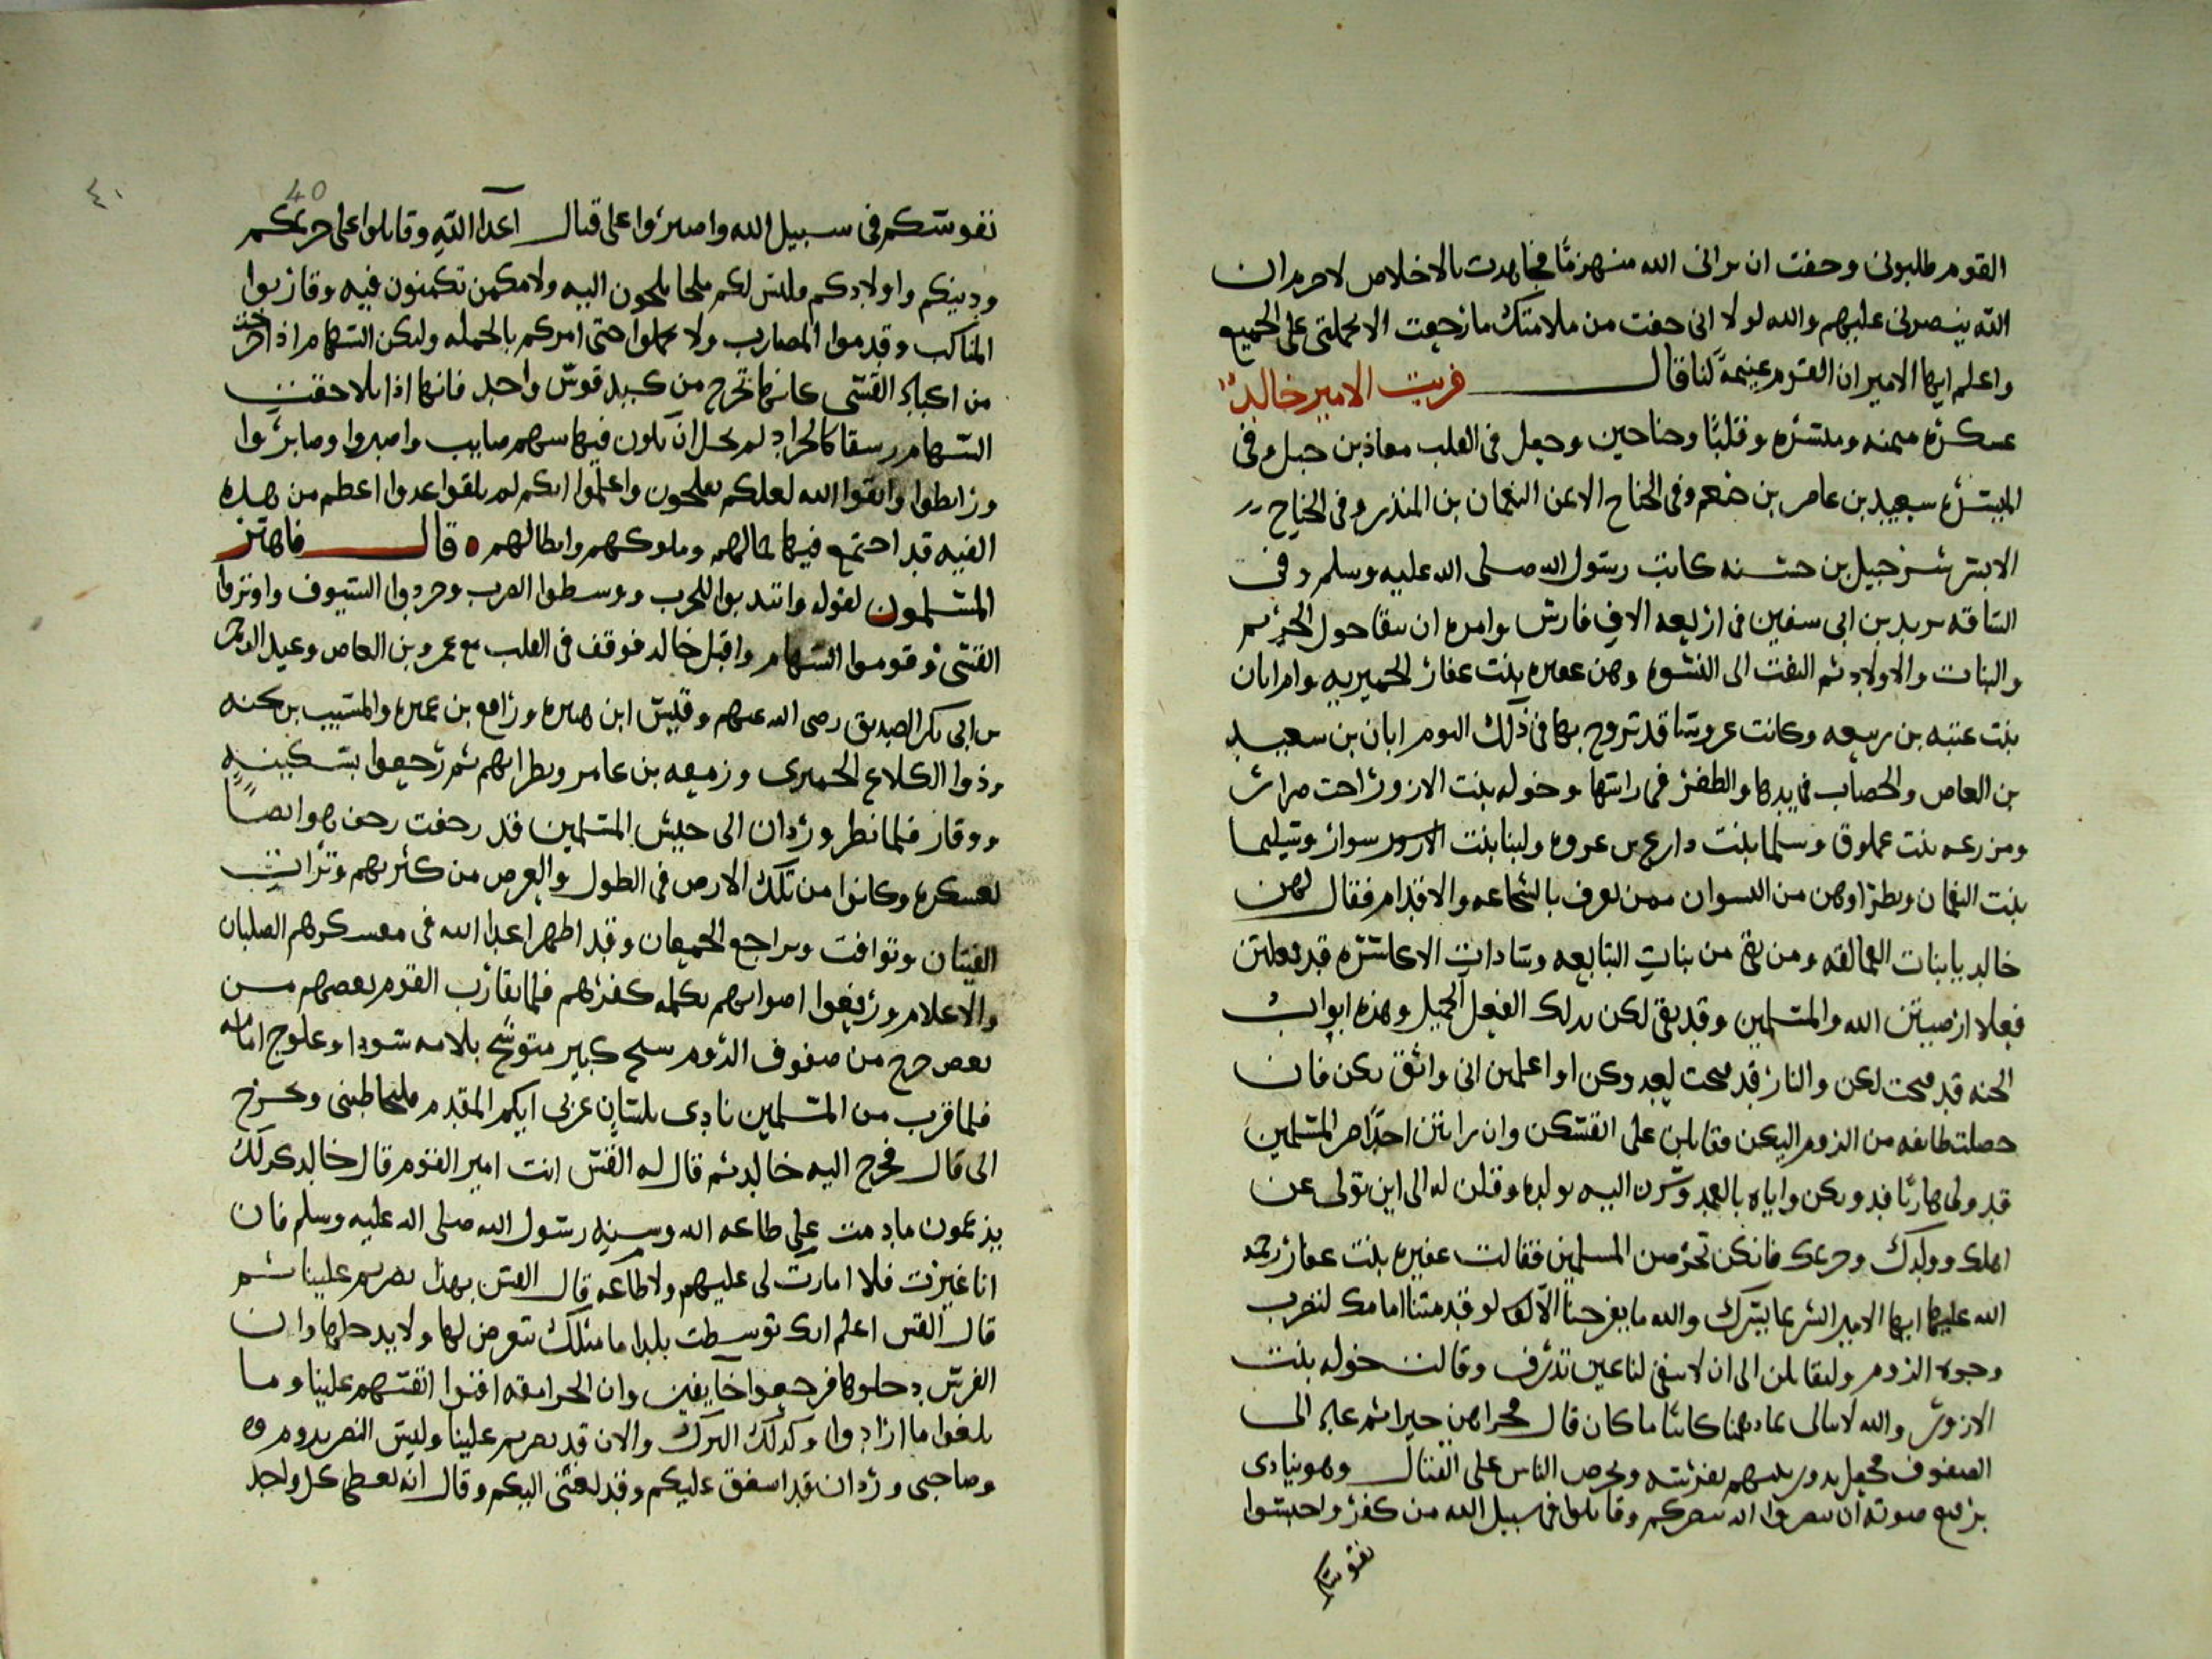 القوم طلبونى وخفت ان يرانى الله منهزمًا فجاهدت بالاخلاص لاجرم ان
الله ينصرنى عليهم والله لولا انى خفت من ملامتك مارجعت الا بحملتى على الجميع
واعلم ايها الامير ان القوم غنيمةً لنا قال فرتب الامير خالد
عسكره ميمنه وميسره وقلبًا وجناحين وجعل فى القلب معاذ بن جبل وفى
الميسره سعيد بن عامر بن خثعم وفى الجناح الايمن النعمان بن المنذر وفى الجناح
الايسر شرحبيل بن حسنه كاتب رسول الله صلى الله عليه وسلم وفى
الساقه يزيد بن ابى سفين فى اربعه الاف فارس وامره ان يبقا حول الحريم
والبنات والاولاد ثم التفت الى النسوه وهن عفيره بنت عفار الحميريه وام ابان
بنت عتبه بن ربيعه وكانت عروسًا قد تزوج بها فى ذلك اليوم ابان بن سعيد
بن العاص والخضاب فى يدها والعطر فى راسها وخوله بنت الازور اخت ضرار
ومزرعه بنت عملوق وسلما بنت دارع بن عروه ولبنا بنت سوار وسليما
بنت النعمان ونظراوهن من النسوان ممن يعرف بالشجاعه والاقدام فقال لهن
خالد يا بنات العمالقه ومن بقى من بنات التبابعه وسادات الاكاسره قد فعلتن
فعلا ارضيتن الله والمسلمين وقد بقى لكن بذلك الفعل الجميل وهذه ابواب
الجنه قد فتحت لكن والنار قد فتحت لعدوكن او اعلمن انى واثق بكن فان
حصلت طايفه من الروم اليكن فقاتلن على انفسكن وان رايتن احدًا من المسلمين
قد ولى هاربًا فدونكن واياه بالعمد وشرن اليه بولده وقلن له الى اين تولى عن
اهلك وولدك وحريمك فانكن تحرضن المسلمين فقالت عفيره بنت عفار رحمه
الله عليها ايها الامير ابشر بما يسرك والله ما يفرحنا الا لو قدمتنا امامك لنضرب
وجوه الروم ولنقاتلن الى ان لا تبقى لنا عين تذرف وقالت خوله بنت
الازور والله لا نبالى بما دهمنا كائنًا ما كان قال فجزاهن خيرا ثم عاد الى
الصفوف فجعل يدور بينهم بفرسه ويحرض الناس على القتال وهو ينادى
برفيع صوته ان تنصروا الله ينصركم وقاتلوا فى سبيل الله من كفر واحبسوا
نفوسكم
40
٤٠
نفوسكم فى سبيل الله واصبروا على قتال اعدا الله وقاتلوا على حريمكم
ودينكم واولادكم وليس لكم ملجا تلجون اليه ولا مكمن تكمنون فيه وقاربوا
المناكب وقدموا المضارب ولا تحملوا حتى امركم بالحمله ولتكن السهام اذا خرجت
من اكباد القسى كانها تخرج من كبد قوس واحد فانها اذا تلاحقت
السهام رشقا كالجراد لم يخل ان يكون فيها سهم صايب واصبروا وصابروا
ورابطوا واتقوا الله لعلكم تفلحون واعلموا انكم لم تلقوا عدوا اعظم من هذه
الفيه قد اجتمع فيها حماتهم وملوكهم وابطالهم ٥ قال فاهتز
المسلمون لقوله وانتدبوا للحرب ووسطوا العرب وجردوا السيوف واوتروا
القسى وقوموا السهام واقبل خالد فوقف فى القلب مع عمرو بن العاص وعبد الرحمن
بن ابى بكر الصديق رضى الله عنهم وقيس ابن هبيره ورافع بن عميره والمسيب بن نجيه
وذوا الكلاع الحميرى وربيعه بن عامر ونظرائهم ثم زحفوا بسكينةٍ
ووقار فلما نظر وردان الى جيش المسلمين قد زحفت زحف هو ايضًا
بعسكره وكانوا من تلك الارض فى الطول والعرض من كثرتهم وترات
الفيتان وتوافت وتراجع الجمعان وقد اظهر اعدا الله فى معسكرهم الصلبان
والاعلام ورفعوا اصواتهم بكلمه كفرهم فلما تقارب القوم بعضهم من
بعض خرج من صفوف الروم شيخ كبير متوشح بلامه سودا وعلوج امامه
فلما قرب من المسلمين نادى بلسان عربى ايكم المقدم فليخاطبنى ويخرج
الى قال فخرج اليه خالد ثم قال له القس انت امير القوم قال خالد كذلك
يزعمون ما دمت على طاعه الله وسنه رسول الله صلى الله عليه وسلم فان
انا غيرت فلا امارت لى عليهم ولا طاعه قال القس بهذا نصرتم علينا ثم
قال القس اعلم انك توسطت بلدا ما ملك تعرض لها ولا يدخلها وان
الفرس دخلوها فرجعوا خايفين وان الجرامقه افنوا انفسهم علينا وما
بلغوا ما ارادوا وكذلك الترك والان قد نصرتم علينا وليس النصر يدوم
وصاحبى وردان قد اشفق عليكم وقد بعثنى اليكم وقال انه يعطى كل واحد